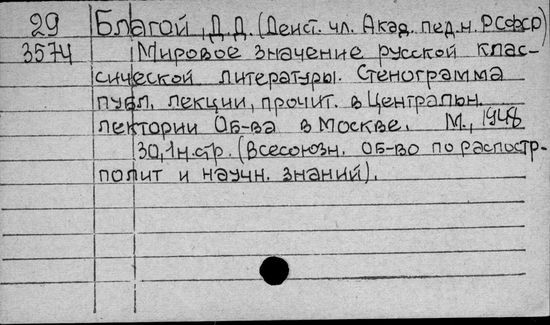 29 Благой, Д.Д. (Деист. чл. Акад. пед. н. РСФСР)
3574 Мировое значение русской клас-
сической литературы. Стенограмма
публ. лекции, прочит. в Центральн.
лектории Об-ва в Москве. М., 1948
30, 1 н. стр. (Всесоюзн. об-во по распостр.
полит и научн. знаний).